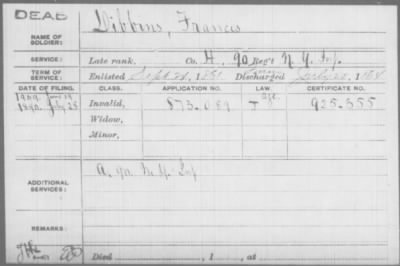 DEAD
NAME OF SOLDIER: Dibbins, Francis
SERVICE: Late rank, Co. H, 90 Reg't N.Y. Inf.
TERM OF SERVICE: Enlisted Sept 24, 1861 Discharged July 20, 1864
DATE OF FILING. CLASS. APPLICATION NO. LAW. CERTIFICATE NO.
1890. July 28 Invalid, 873.089 925.355
Widow,
Minor,
ADDITIONAL SERVICES: A. 90. N.Y. Inf
REMARKS:
Died , 1 , at